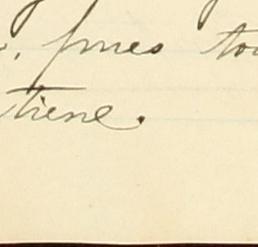 pues to
tiene.